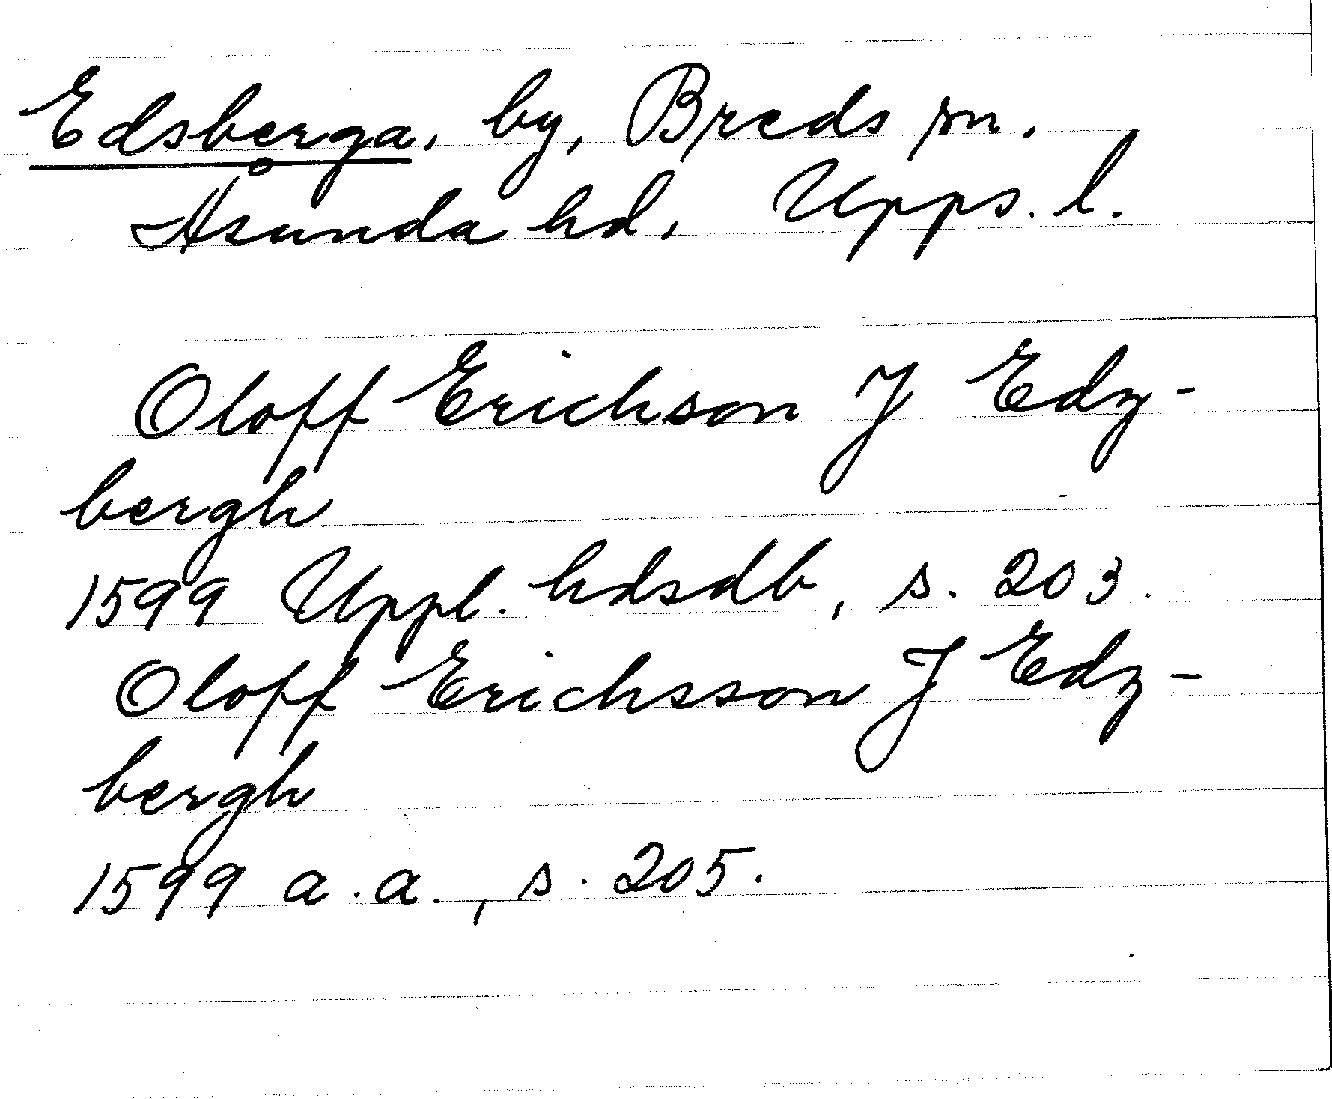 Edsberga, by, Breds sn.
Åsunda hd, Upps. l.
Oloff Erichson J Edz-
bergh
1599 Uppl. hdsdb, s. 203.
Oloff Erichsson J Edz-
bergh
1599 a.a., s. 205.